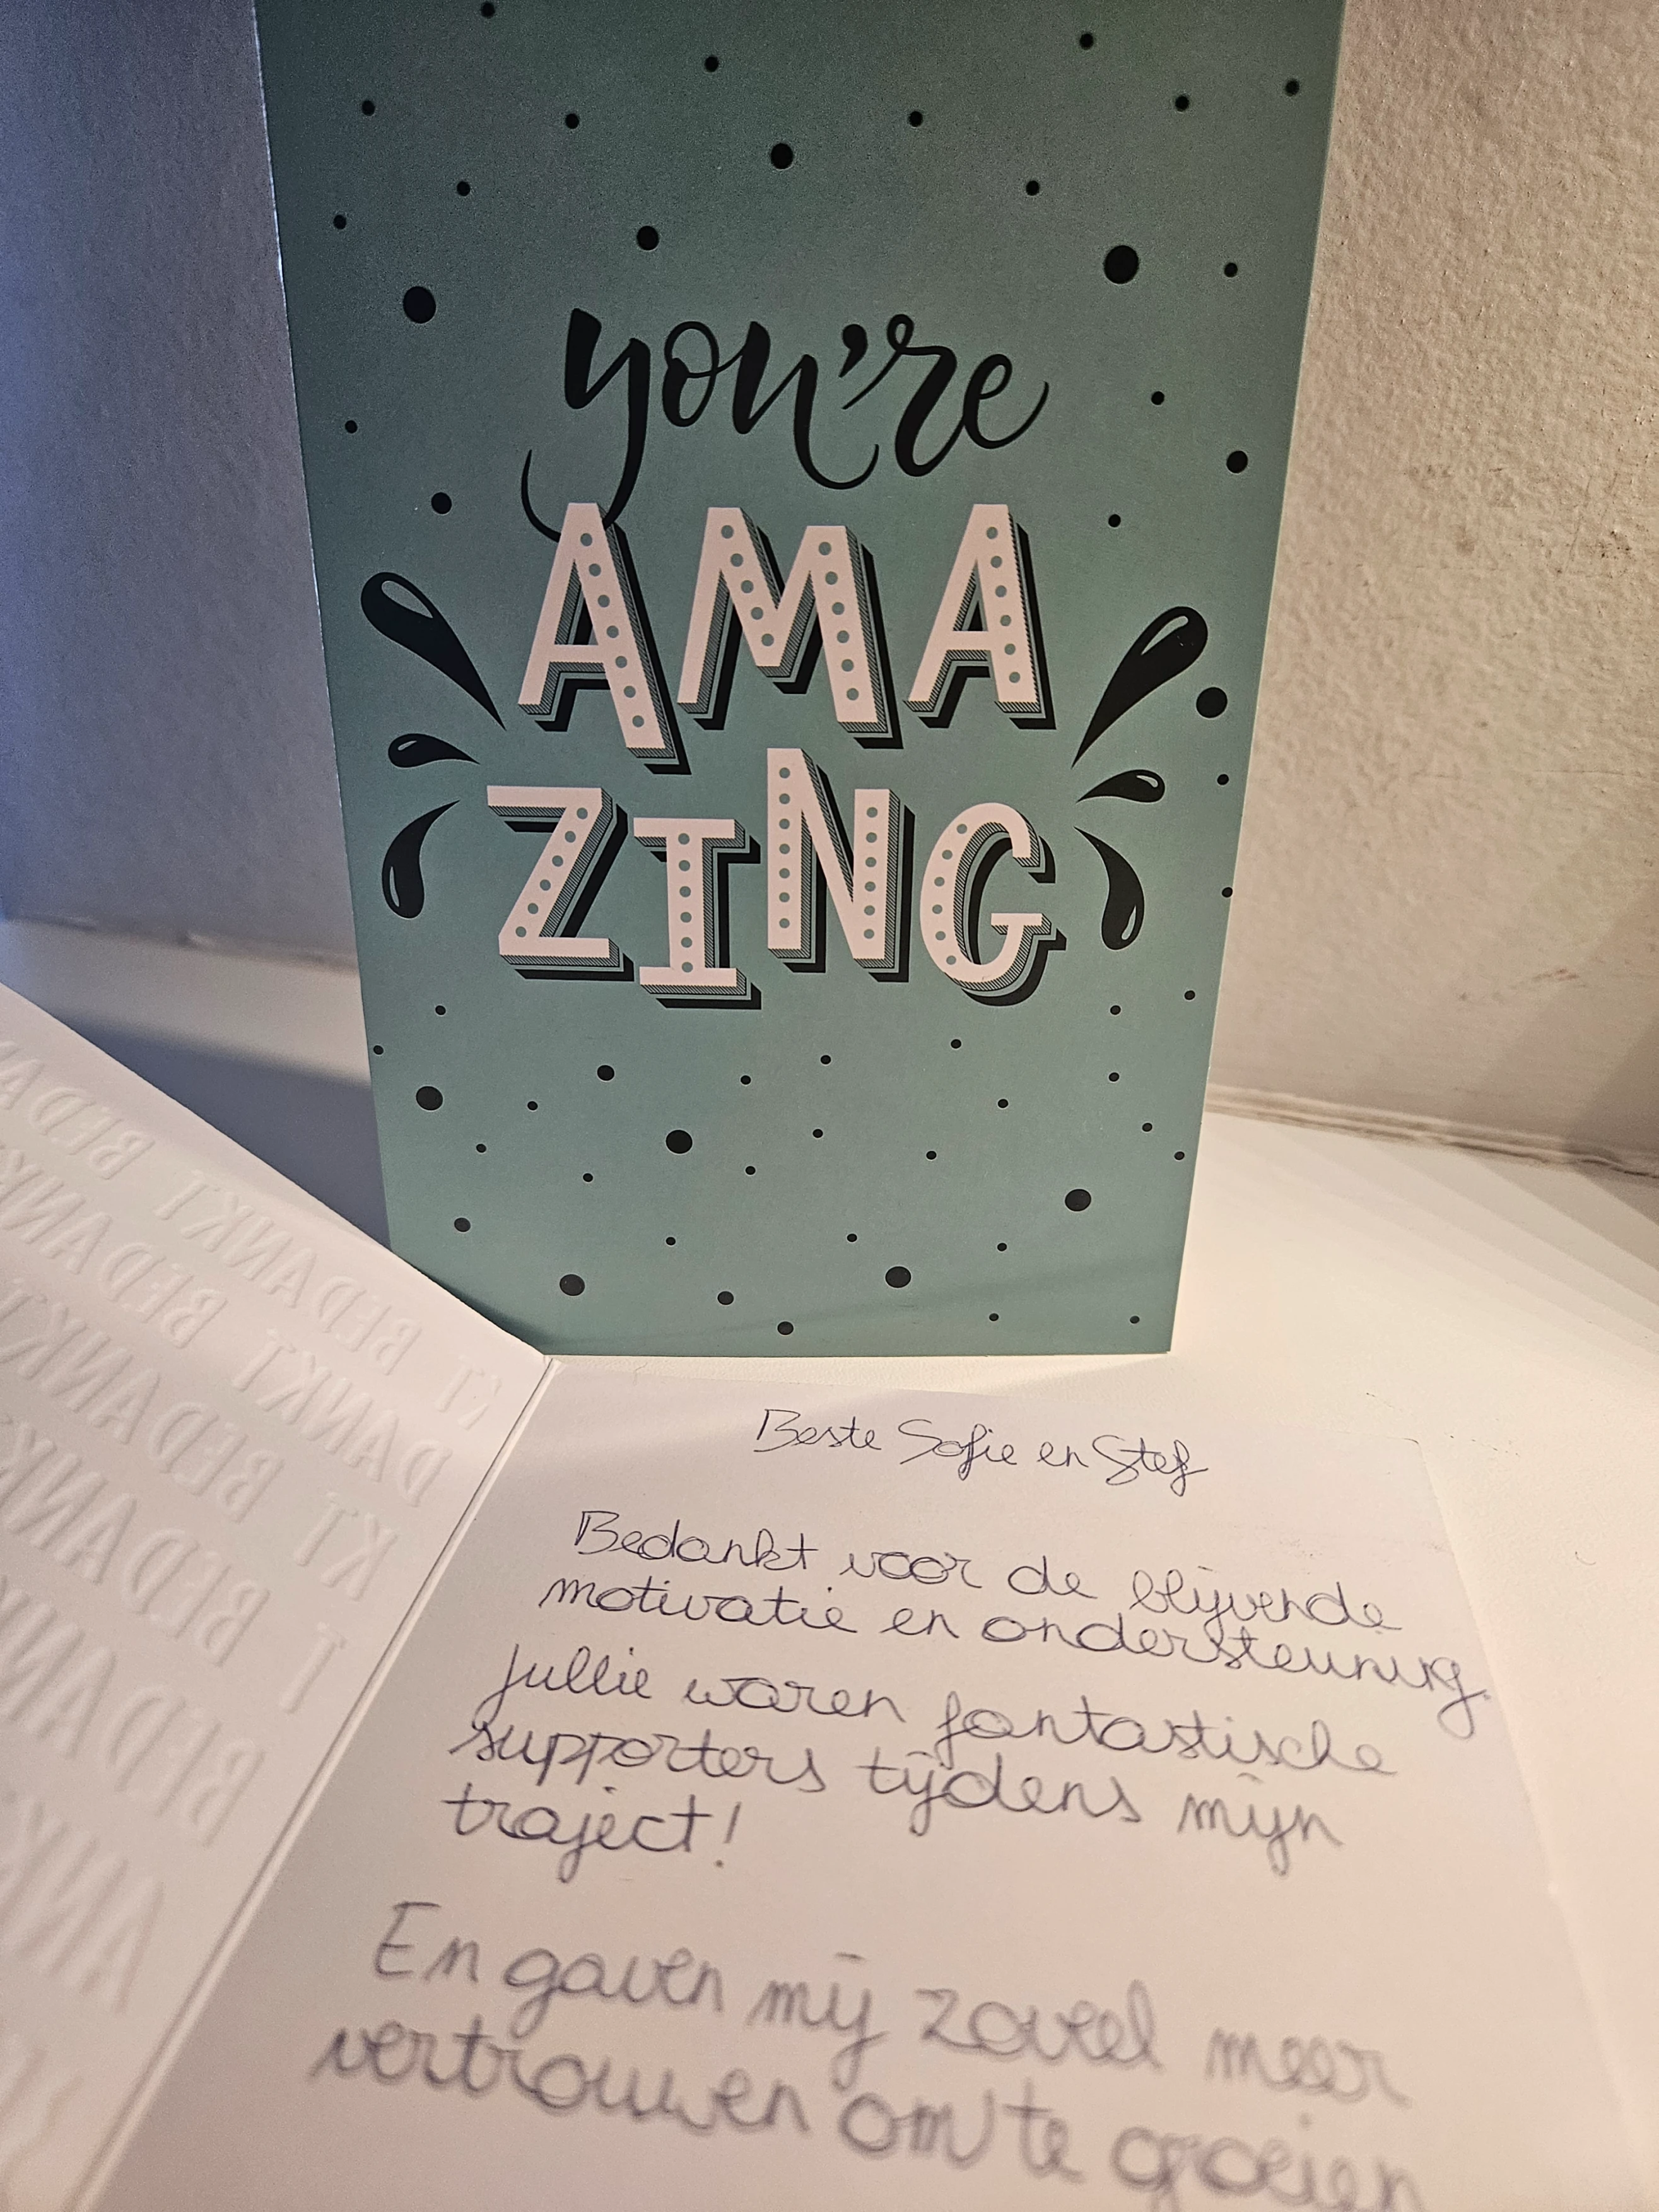 you're
AMA
ZING
BEDANKT BEDANKT
BEDANKT BEDANKT
BEDANKT BEDANKT
BEDANKT
BEDANKT
Beste Sofie en Stef
Bedankt voor de blijvende
motivatie en ondersteuning.
Jullie waren fantastische
supporters tijdens mijn
traject!
En gaven mij zoveel meer
vertrouwen om te groeien